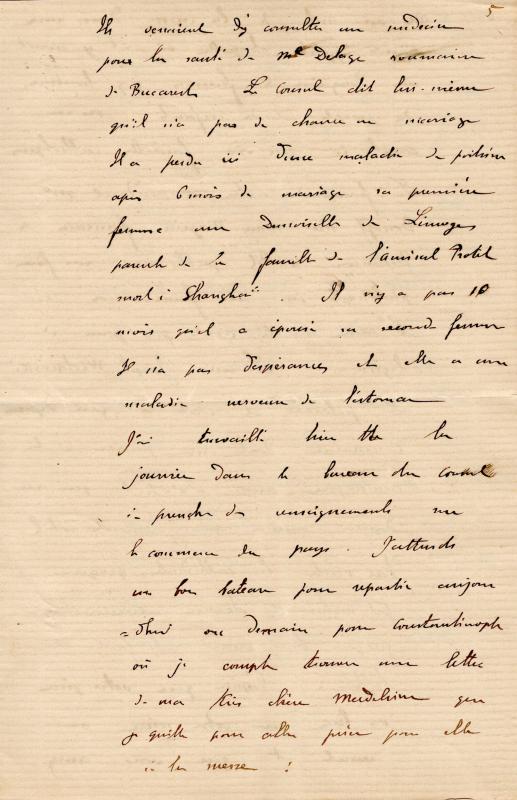 5
Ils venaient de consulter un médecin
pour la santé de Me Delage roumaine
de Bucarest Le Consul dit lui-même
qu'il n'a pas de chance en mariage
Il a perdu ici d'une maladie de poitrine
après 6 mois de mariage sa première
femme une Demoiselle de Limoges
parente de la famille de l'amiral Protet
mort à Shanghaï. Il n'y a pas 10
mois qu'il a épousé sa seconde femme
Il n'a pas d'espérances et elle a une
maladie nerveuse de l'estomac
J'ai travaillé hier tte la
journée dans le bureau du consul
à prendre des renseignements sur
le commerce du pays. J'attends
un bon bateau pour repartir aujour
=d'hui ou demain pour Constantinople
où je compte trouver une lettre
de ma très chère Madeleine que
je quitte pour aller prier pour elle
à la messe !